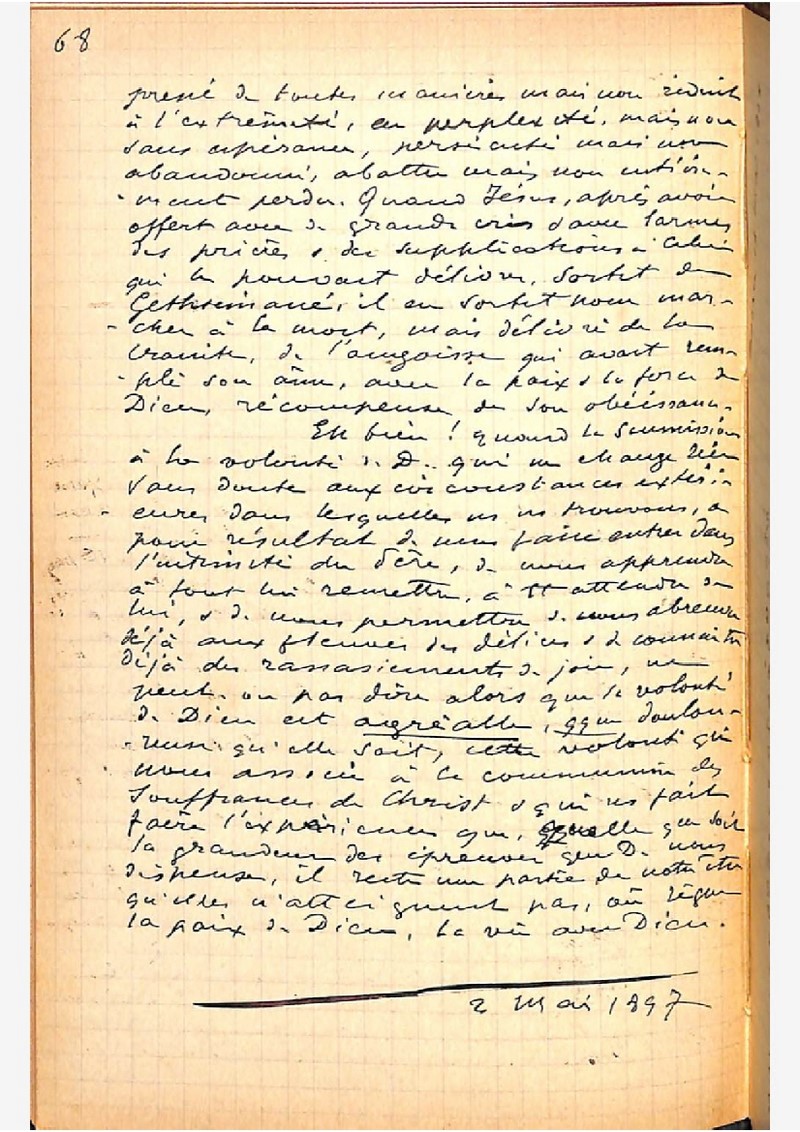 68
pressé de toutes manières mais non réduit
à l'extrêmité, en perplexité, mais non
sans espérance, persécuté mais non
abandonné, abattu mais non entière-
-ment perdu. Quand Jésus, après avoir
offert avec de grands cris & avec larmes
des prières & des supplications à Celui
qui le pouvait délivrer, sortit de
Gethsémané, il en sortit pour mar-
-cher à la mort, mais délivré de la
crainte, de l'angoisse qui avait rem-
-pli son âme, avec la paix & la force de
Dieu, récompense de son obéissance.
Eh bien ! quand la soumission
à la volonté d. D. qui ne change rien
sans doute aux circonstances extéri-
-eures dans lesquelles ns ns trouvons, a
pour résultat de nous faire entrer dans
l'intimité du Père, de nous apprendre
à tout lui remettre, à tt attendre de
lui, & de nous permettre de nous abreuver
déjà aux fleuves des délices & de connaître
déjà des rassasiements de joie, ne
peut-on pas dire alors que la volonté
de Dieu est agréable, qque doulou-
-reuse qu'elle soit, cette volonté qui
nous associe à la communion des
souffrances de Christ & qui ns fait
faire l'expérience que, quelle que soit
la grandeur des épreuves que D. nous
dispense, il reste une partie de notre être
qu'elles n'atteignent pas, où règne
la paix de Dieu, la vie avec Dieu.
2 Mai 1897